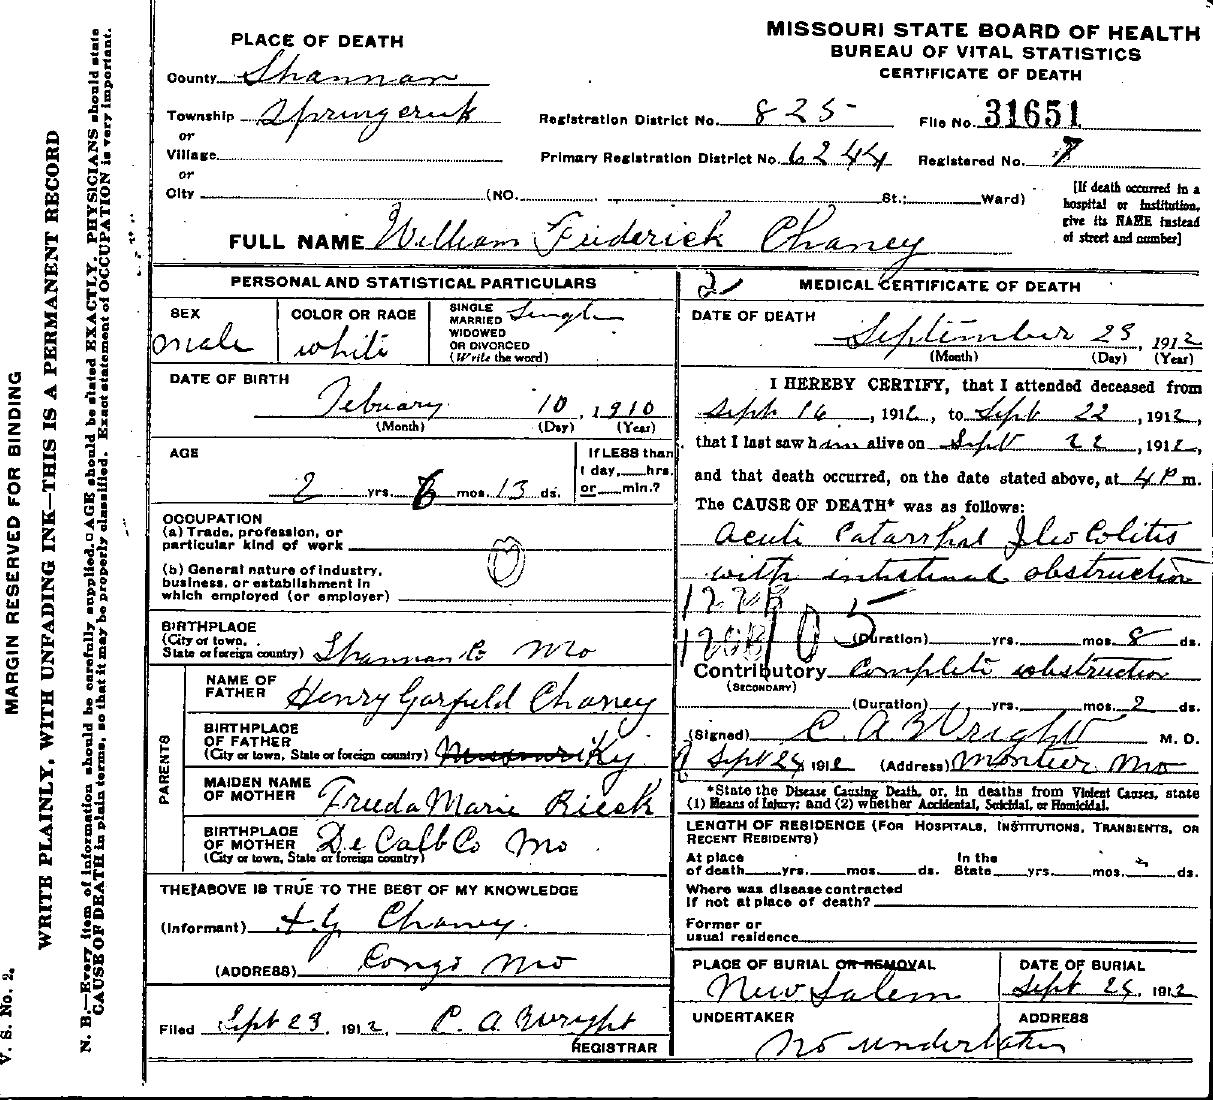 MISSOURI STATE BOARD OF HEALTH
BUREAU OF VITAL STATISTICS
CERTIFICATE OF DEATH
PLACE OF DEATH
County Shannon
Township Springcreek
or
Village
or
City (NO. St.; Ward)
Registration District No. 825
File No. 31651
Primary Registration District No. 6244
Registered No. 7
[If death occurred in a
hospital or institution,
give its NAME instead
of street and number]
FULL NAME William Frederick Chaney
PERSONAL AND STATISTICAL PARTICULARS
SEX
male
COLOR OR RACE
white
SINGLE
MARRIED
WIDOWED
OR DIVORCED
(Write the word)
Single
DATE OF BIRTH
Febuary 10, 1910
(Month) (Day) (Year)
AGE
2 yrs. 6 mos. 13 ds.
If LESS than
1 day, hrs.
or min.?
OCCUPATION
(a) Trade, profession, or
particular kind of work
(b) General nature of industry,
business, or establishment in
which employed (or employer)
BIRTHPLACE
(City or town,
State or foreign country) Shannon Co Mo
PARENTS
NAME OF
FATHER Henry Garfield Chaney
BIRTHPLACE
OF FATHER
(City or town, State or foreign country) Missouri Ky
MAIDEN NAME
OF MOTHER Frieda Marie Rieck
BIRTHPLACE
OF MOTHER
(City or town, State or foreign country) De Calb Co Mo
THE ABOVE IS TRUE TO THE BEST OF MY KNOWLEDGE
(Informant) H. G. Chaney
(ADDRESS) Congo Mo
Filed Sept 23 1912, C. A. Wright
REGISTRAR
2
MEDICAL CERTIFICATE OF DEATH
DATE OF DEATH
September 23, 1912
(Month) (Day) (Year)
I HEREBY CERTIFY, that I attended deceased from
Sept 16, 1912, to Sept 22, 1912,
that I last saw him alive on Sept 22, 1912,
and that death occurred, on the date stated above, at 4 P m.
The CAUSE OF DEATH* was as follows:
Acute Catarrhal Ileo Colitis
with intestinal obstruction
122B
120B 105
(Duration) yrs. mos. 8 ds.
Contributory Complete obstruction
(SECONDARY)
(Duration) yrs. mos. 2 ds.
(Signed) C. A. Wright M. D.
Sept 24 1912 (Address) Montier Mo
*State the Disease Causing Death, or, in deaths from Violent Causes, state
(1) Means of Injury; and (2) whether Accidental, Suicidal, or Homicidal.
LENGTH OF RESIDENCE (For Hospitals, Institutions, Transients, or
Recent Residents)
At place
of death yrs. mos. ds.
In the
State yrs. mos. ds.
Where was disease contracted
If not at place of death?
Former or
usual residence
PLACE OF BURIAL OR REMOVAL
New Salem
DATE OF BURIAL
Sept 24, 1912
UNDERTAKER
ADDRESS
No undertaker
MARGIN RESERVED FOR BINDING
WRITE PLAINLY, WITH UNFADING INK—THIS IS A PERMANENT RECORD
N. B.—Every item of information should be carefully supplied. AGE should be stated EXACTLY. PHYSICIANS should state
CAUSE OF DEATH in plain terms, so that it may be properly classified. Exact statement of OCCUPATION is very important.
V. S. No. 2.